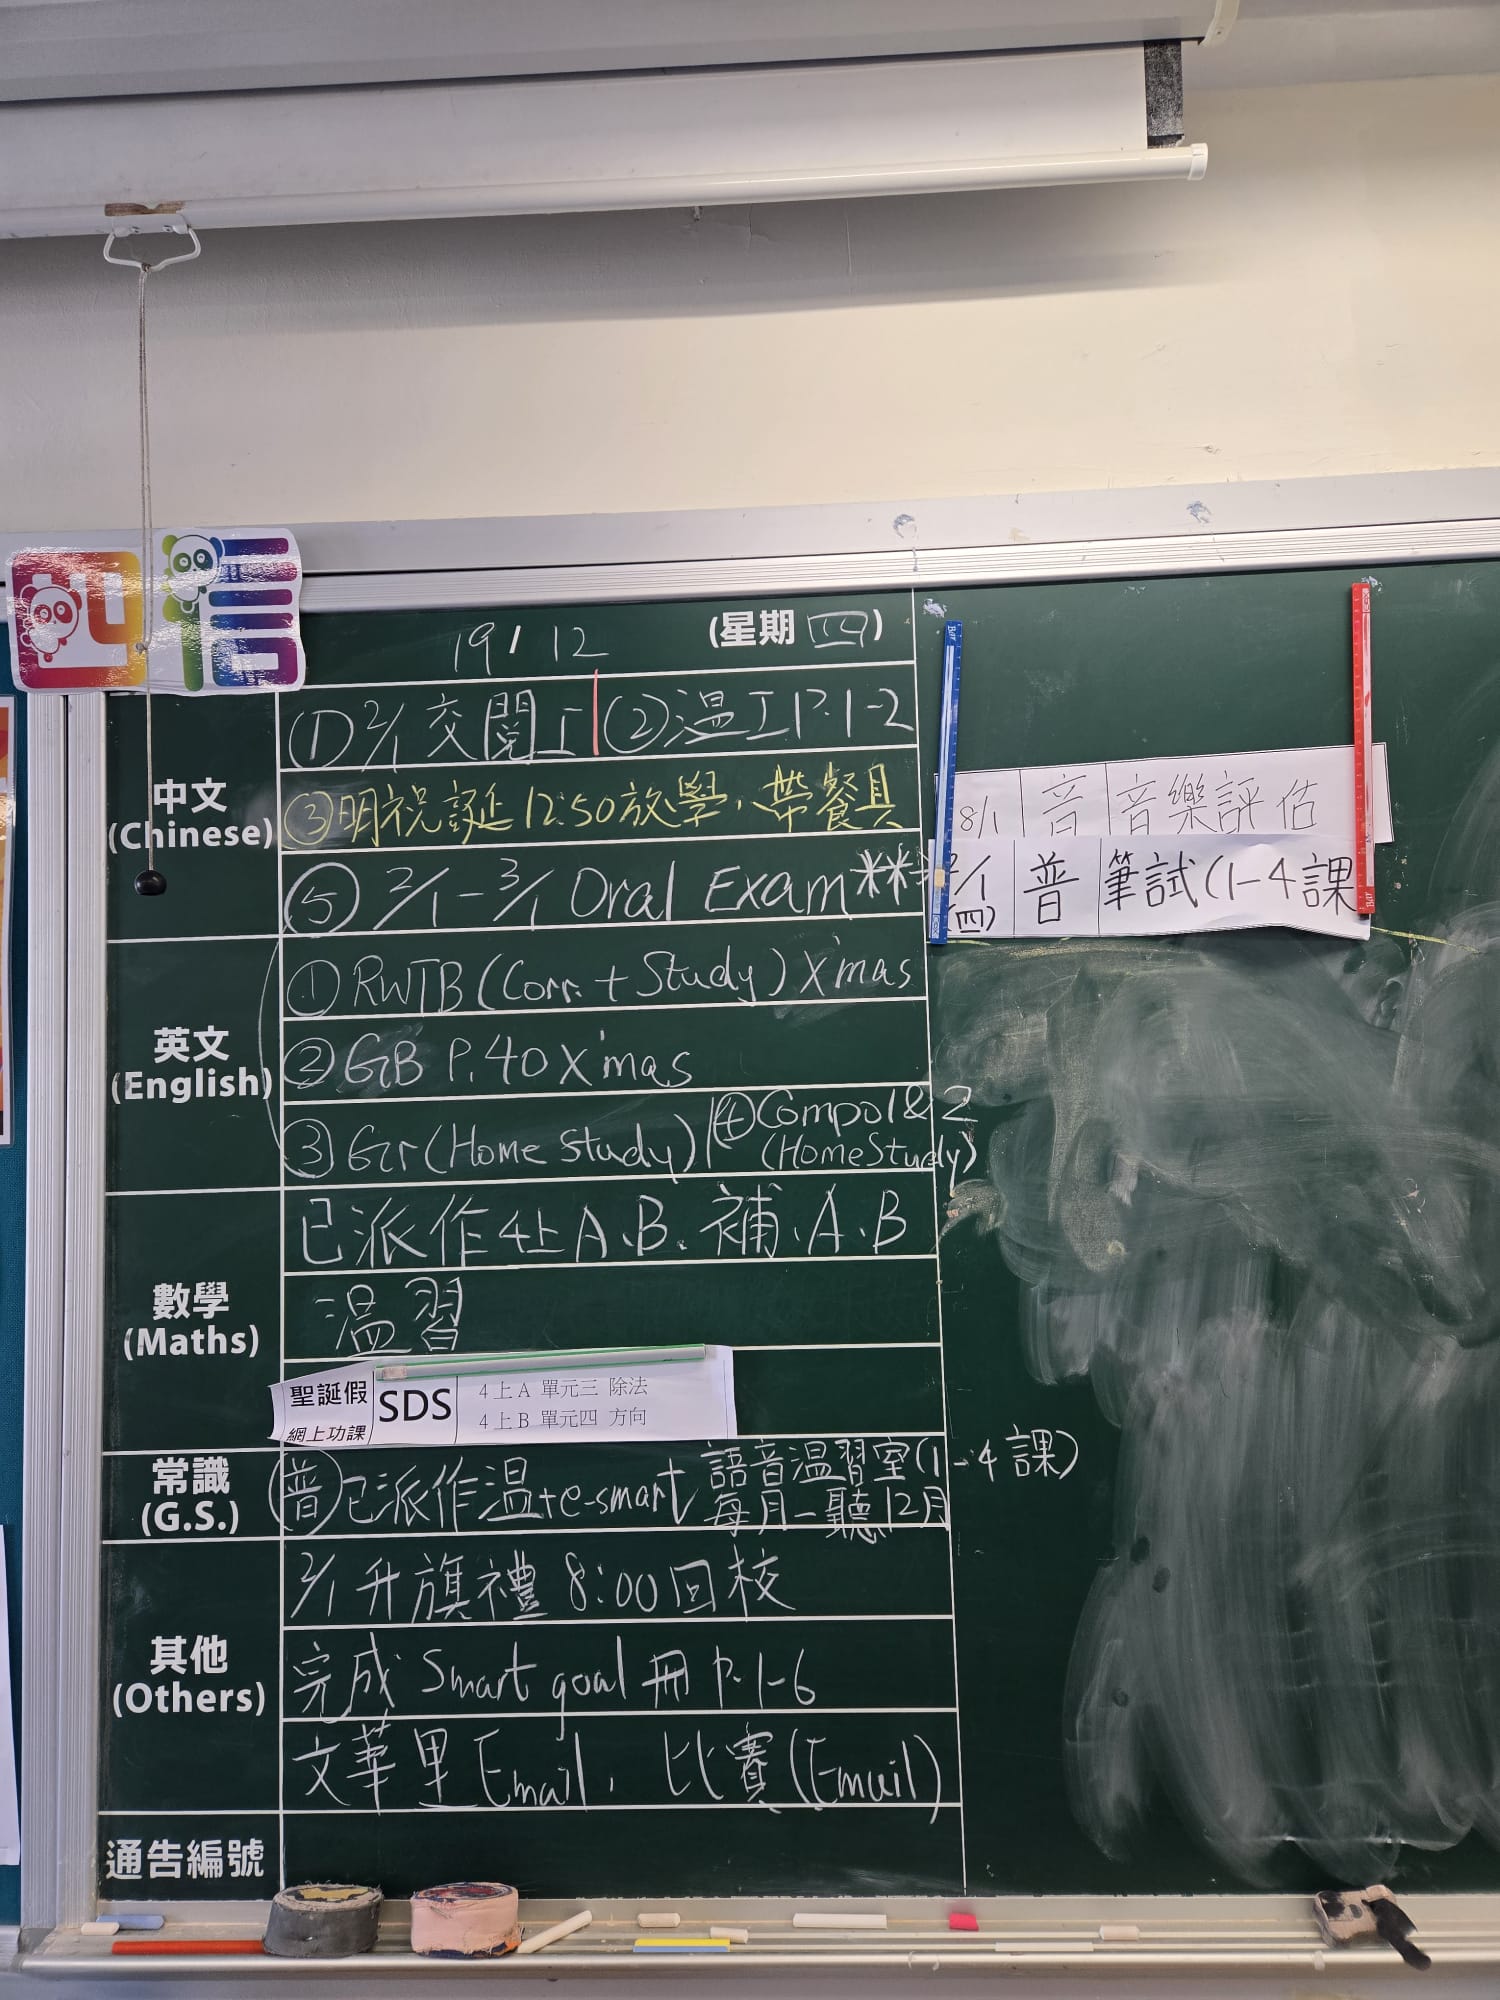 四信
19/12 (星期四)
中文 (Chinese)
① 2/1 交閱工 ② 溫工 P.1-2
③ 明祝誕 12:50放學，帶餐具
⑤ 2/1 - 3/1 Oral Exam **
英文 (English)
① RWTB (Corr. + Study) X'mas
② GB P.40 X'mas
③ Gr (Home Study) ④ Compo 1 & 2 (Home Study)
數學 (Maths)
已派作4上A、B、補、A、B
溫習
聖誕假 網上功課 SDS 4上A 單元三 除法
4上B 單元四 方向
常識 (G.S.)
普 已派作溫 + e-smart 語音溫習室(1-4課)
每月一聽 12月
其他 (Others)
2/1 升旗禮 8:00回校
完成 Smart goal 冊 P.1-6
文華里 Email, 比賽(Email)
通告編號
8/1 音 音樂評估
/1 (四) 普 筆試(1-4課